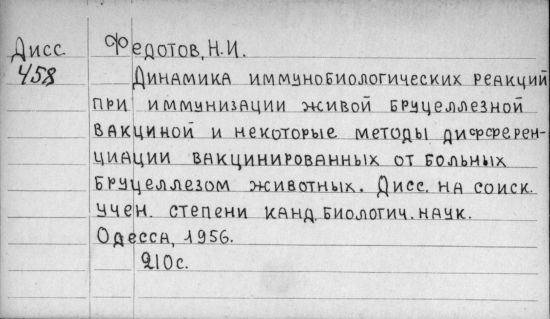 Дисс. Федотов, Н.И.
458 Динамика иммунобиологических реакций
при иммунизации живой бруцеллезной
вакциной и некоторые методы дифферен-
циации вакцинированных от больных
бруцеллезом животных. Дисс. на соиск.
учен. степени канд. биологич. наук.
Одесса, 1956.
210с.